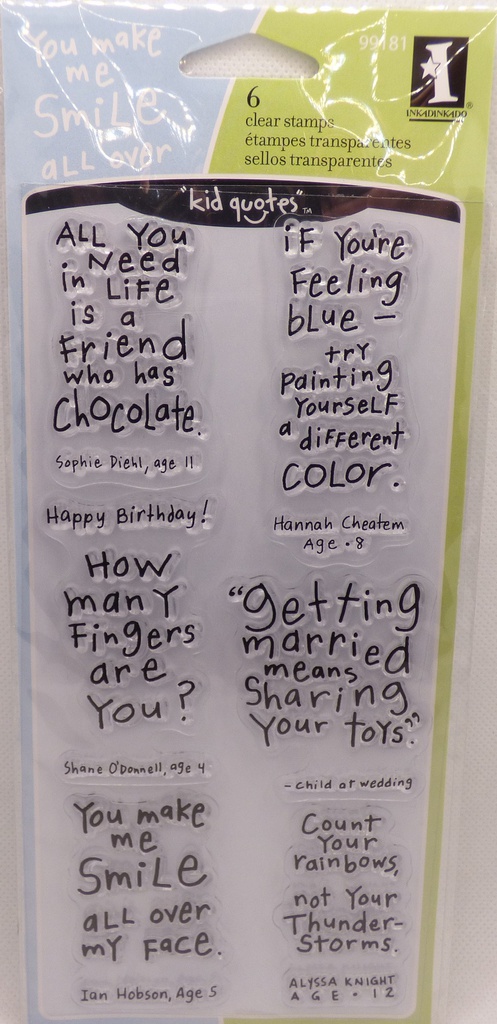 You make
me
Smile
all over
99181
INKADINKADO
6
clear stamps
étampes transparentes
sellos transparentes
"kid quotes"™
ALL You
Need
in Life
is a
Friend
who has
Chocolate.
Sophie Diehl, age 11
Happy Birthday!
How
many
Fingers
are
You?
Shane O'Donnell, age 4
You make
me
Smile
all over
my Face.
Ian Hobson, Age 5
if You're
Feeling
blue –
try
painting
Yourself
a different
COLOR.
Hannah Cheatem
Age • 8
"getting
married
means
Sharing
Your toys."
- child at wedding
Count
Your
rainbows,
not Your
Thunder-
Storms.
ALYSSA KNIGHT
AGE • 12